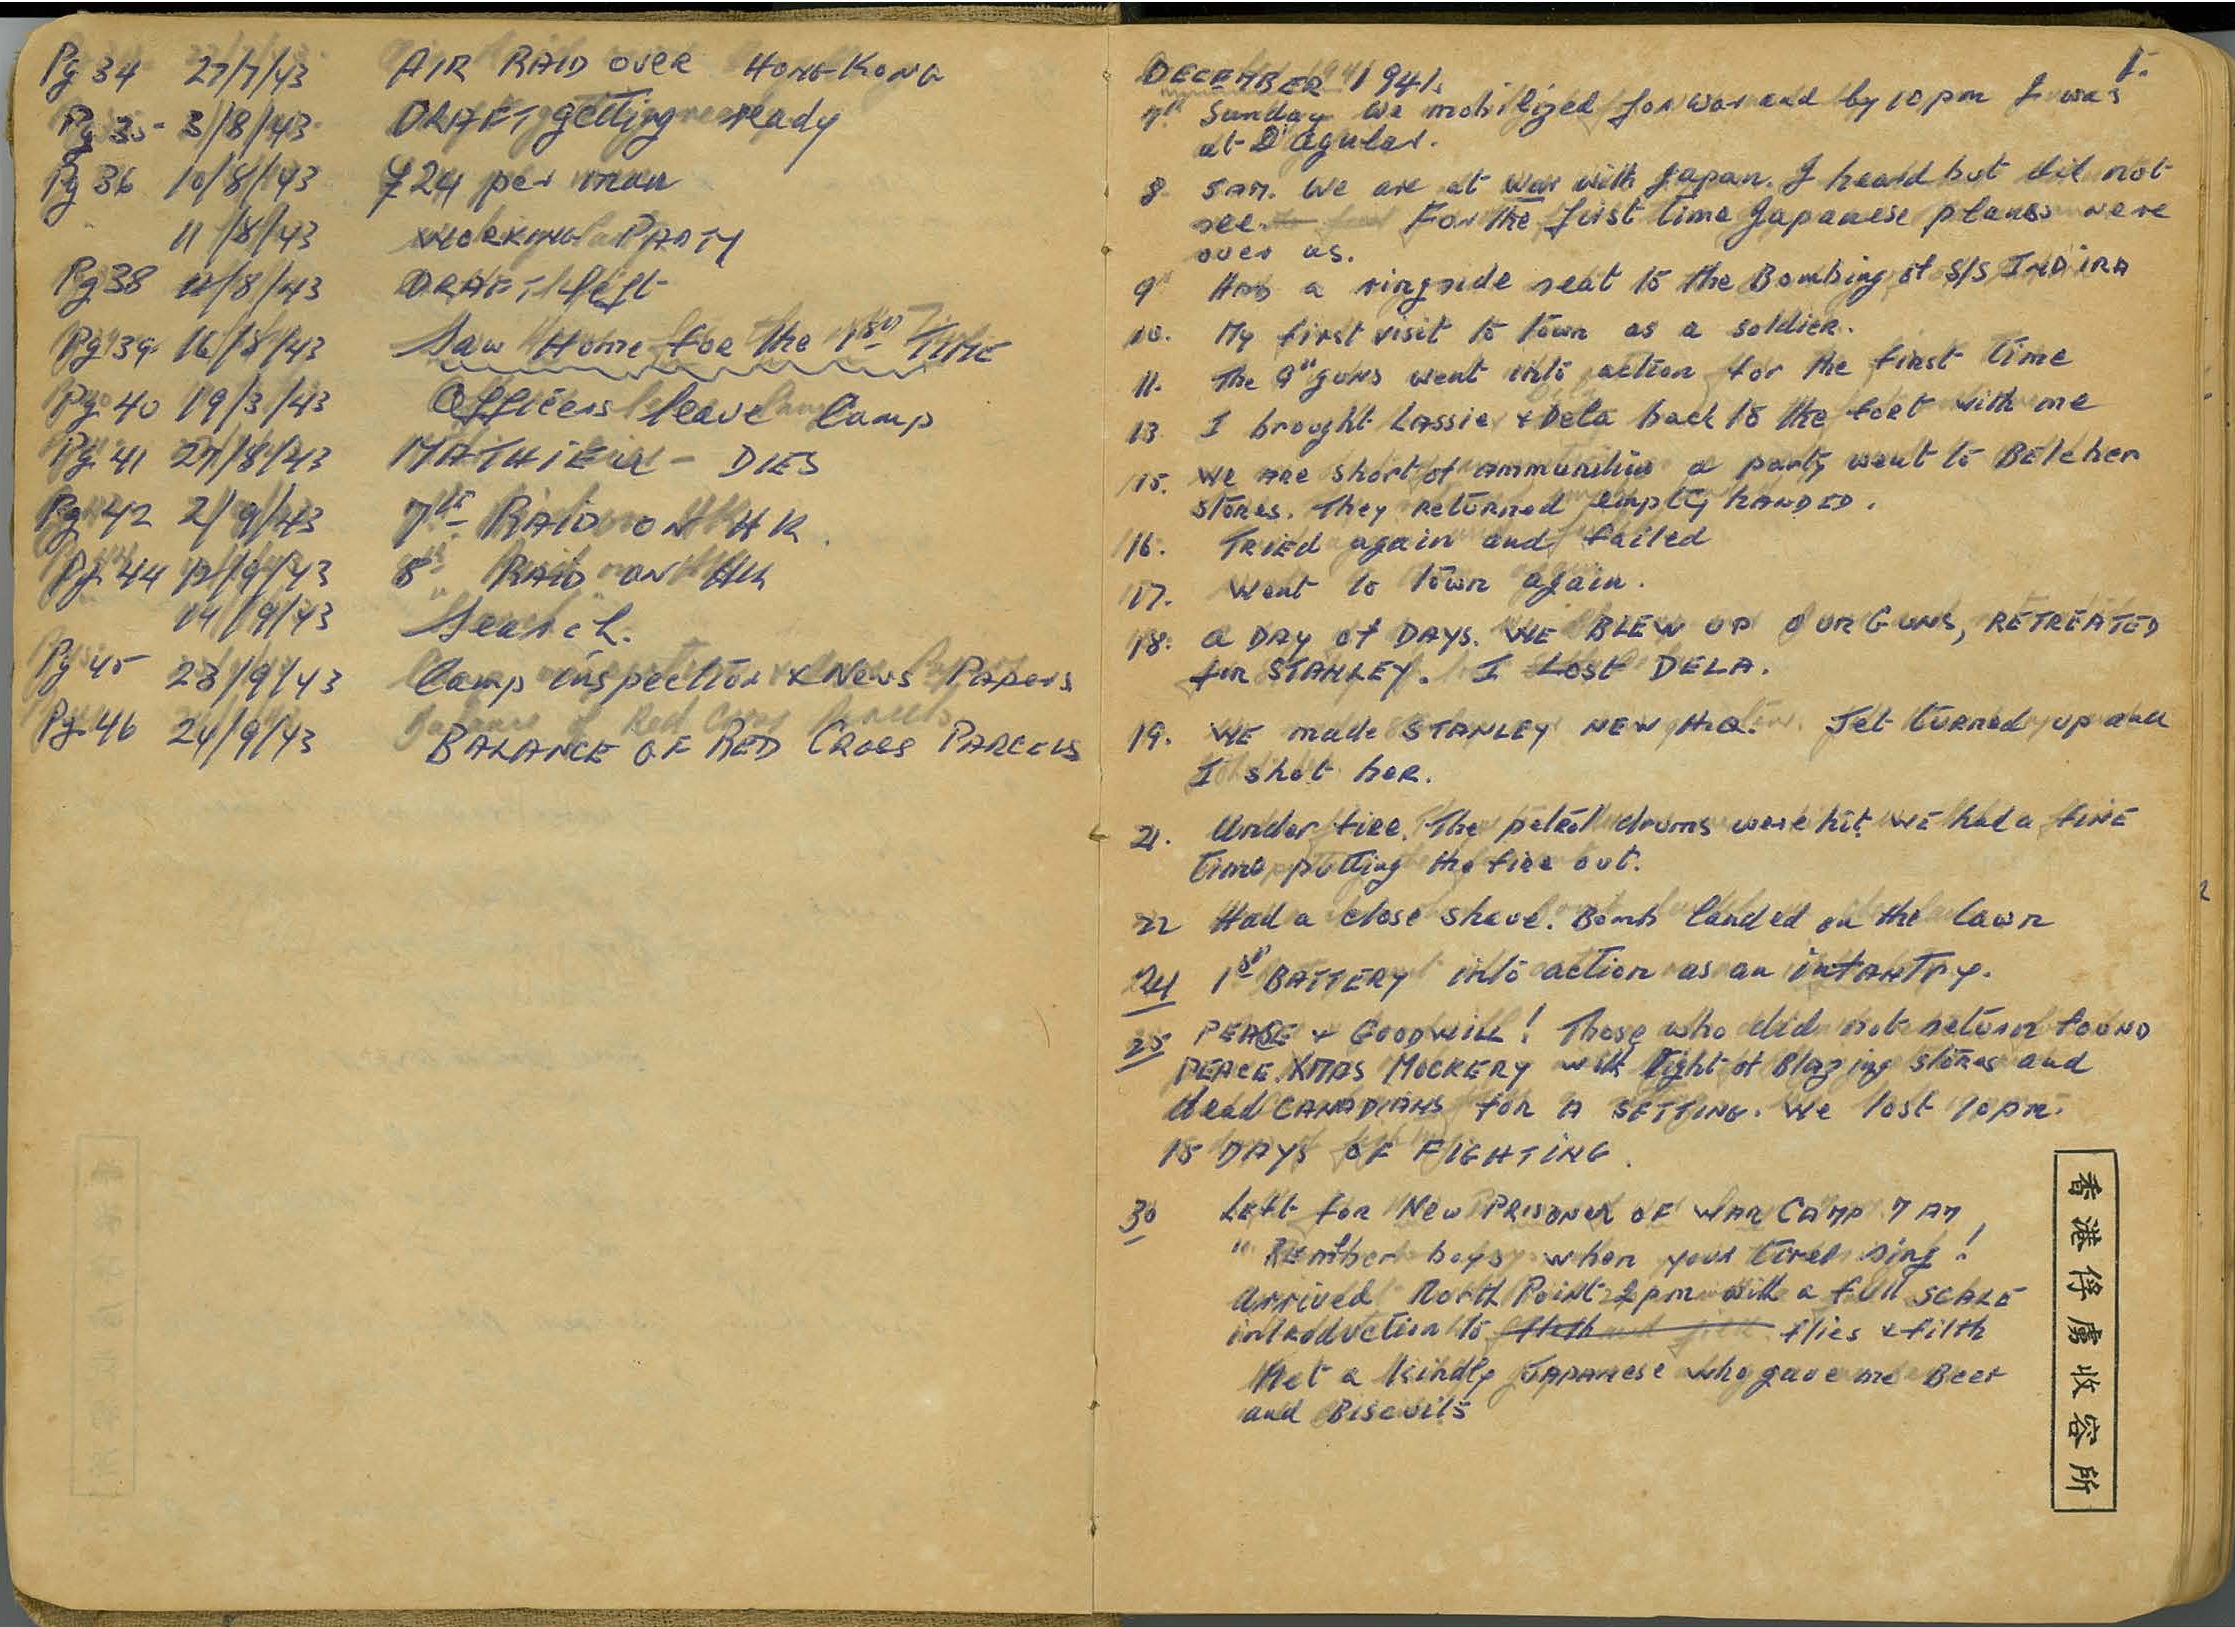 Pg 34 27/7/43 AIR RAID OVER HONG KONG
Pg 35 3/8/43 DRAFT getting ready
Pg 36 10/8/43 24 per man
11/8/43 WORKING PARTY
Pg 38 /8/43 DRAFT left
Pg 39 16/8/43 Saw Home for the 1st TIME
Pg 40 19/3/43 Officers leave Camp
Pg 41 27/8/43 DIES
Pg 42 2/9/43 7th RAID ON HK.
Pg 44 /9/43 8th RAID ON HK
14/9/43 Search.
Pg 45 23/9/43 Camp inspection & News Papers
Pg 46 24/9/43 BALANCE OF RED CROSS PARCELS
1.
DECEMBER 1941.
7th Sunday We mobilized for war and by 10 pm I was
at D'Agular.
8 5 AM. We are at war with Japan. I heard but did not
see. For the first time Japanese planes were
over us.
9 Had a ringside seat to the Bombing of S/S INDIRA
10. My first visit to town as a soldier.
11. The 9" guns went into action for the first time
13 I brought Lassie & Dela back to the fort with me
15. We are short of ammunition a party went to Belcher
stores. They returned empty HANDED.
16. TRIED again and failed
17. Went to town again.
18. a DAY of DAYS. WE BLEW UP OUR GUNS, RETREATED
for STANLEY. I LOST DELA.
19. WE made STANLEY NEW H.Q. Jet turned up and
I shot her.
21. Under fire. The petrol drums were hit. WE had a fine
time putting the fire out.
22 Had a close shave. Bomb landed on the lawn
24 1st BATTERY into action as an infantry.
25 PEACE & GOODWILL! Those who did not return found
PEACE. XMAS MOCKERY with light of Blazing stores and
dead CANADIANS for A SETTING. We lost pm.
18 DAYS OF FIGHTING.
30 Left for New PRISONER OF WAR CAMP 7 AM
" REmber boys when your tired sing!
Arrived North Point 2 pm with a full SCALE
introduction to flies & filth
Met a kindly JAPANESE who gave me Beer
and Biscuits
香港俘虜收容所